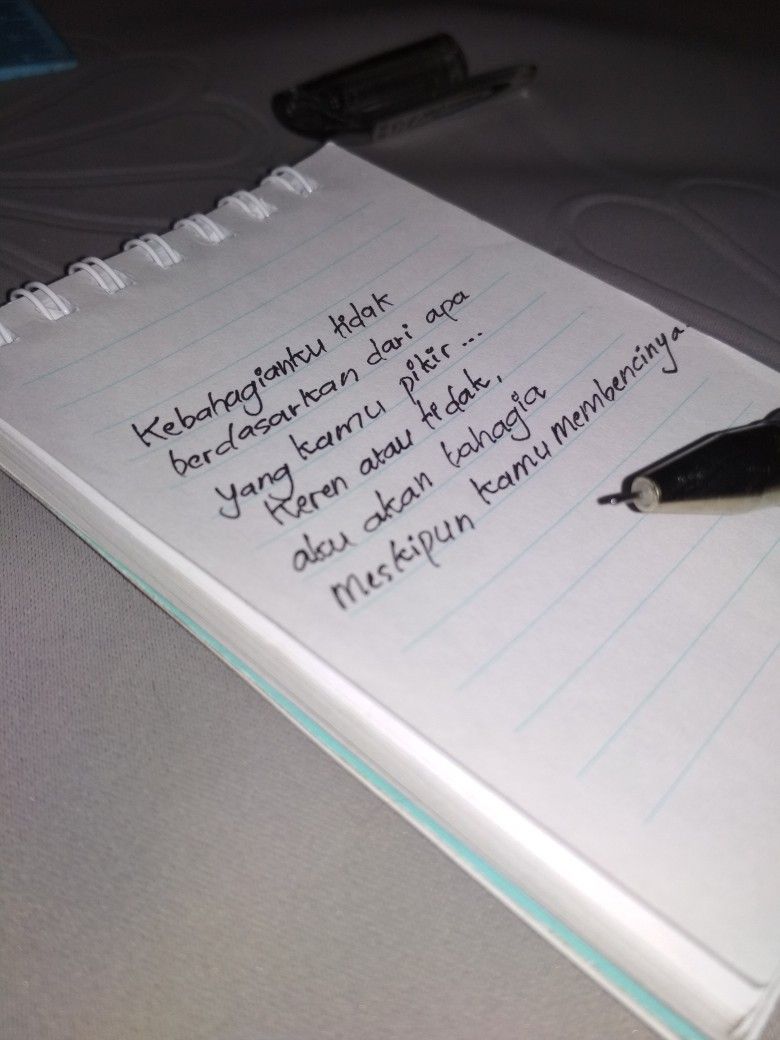 Kebahagianku tidak
berdasarkan dari apa
yang kamu pikir...
Keren atau tidak,
aku akan bahagia
Meskipun kamu membencinya.